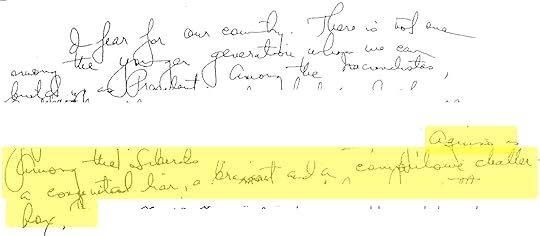 I fear for our country. There is not one
among the younger generation whom we can
build up as President. Among the Nacionalistas,
Aquino is
Among the Liberals
a congenital liar, a braggart and a compulsive chatter
box,